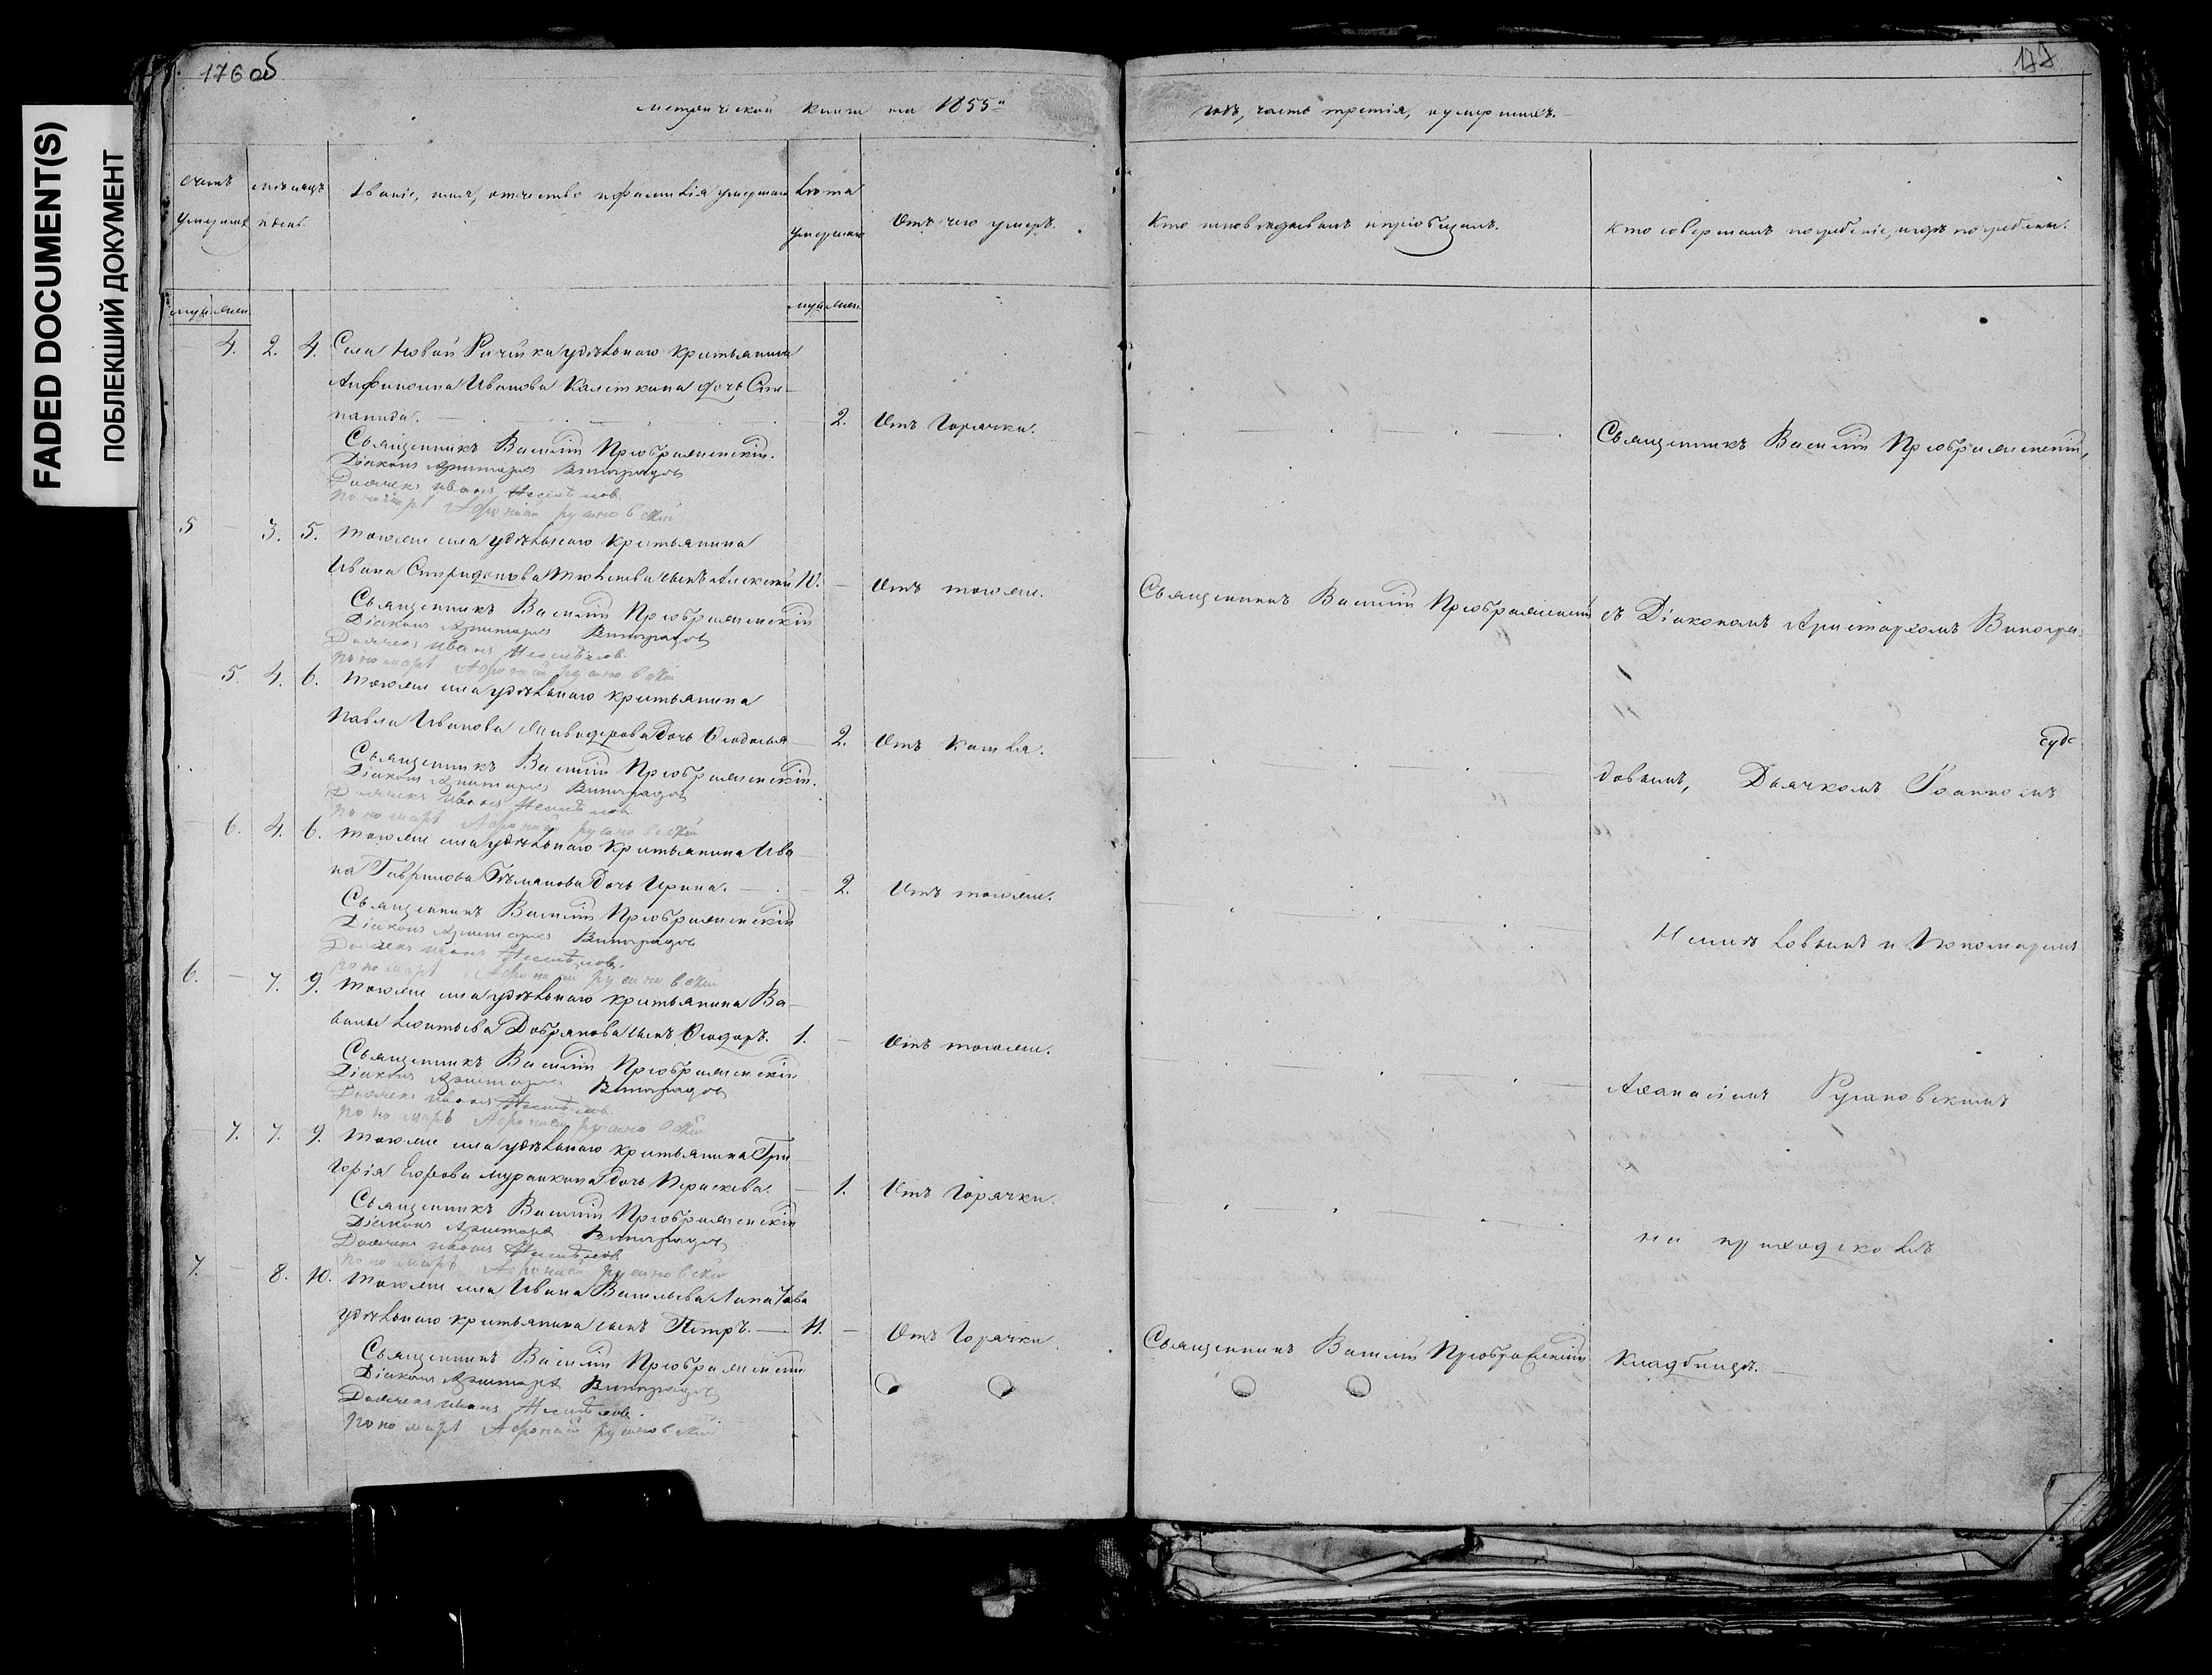 FADED DOCUMENT(S)
ПОБЛЕКШИЙ ДОКУМЕНТ
176 об
177
метрической книги на 1855й
годъ, часть третія, о умершихъ.
счетъ умершихъ
мѣсяцъ и день.
Званіе, имя, отчество и фамилія умершаго
Лѣта умершаго
Отъ чего умеръ.
Кто исповѣдывалъ и пріобщалъ.
Кто совершалъ погребеніе, и гдѣ погребены.
муж. жен.
муж. жен.
4. 2. 4. Села Новой Рачейки удѣльнаго крестьянина
Ивanова дочь Сте-
панида. 2. Отъ Горячки.
Священникъ Василій Преображенскій,
Священникъ Василій Преображенскій.
Діаконъ Аристархъ Виноградовъ
Дьячекъ Иванъ Несмѣловъ
Пономарь Афонасій Русановскій
5 3. 5. Тогоже села удѣльнаго крестьянина
Ивана Спиридонова сынъ Алексей 10. Отъ тогоже.
Священникъ Василій Преображенскій
съ Діакономъ Аристархомъ Виногра-
Священникъ Василій Преображенскій
Діаконъ Аристархъ Виноградовъ
Дьячекъ Иванъ Несмѣловъ
Пономарь Афонасій Русановскій
5. 4. 6. Тогоже села удѣльнаго крестьянина
Павла Иванова дочь 2. Отъ Кашля.
довымъ, Дьячкомъ Іоанномъ
Священникъ Василій Преображенскій.
Діаконъ Аристархъ Виноградовъ
Дьячекъ Иванъ Несмѣловъ
Пономарь Афонасій Русановскій
6. 4. 6. Тогоже села удѣльнаго крестьянина Ива-
на Гаврилова дочь Ирина. 2. Отъ тогоже.
Несмѣловымъ и Пономаремъ
Священникъ Василій Преображенскій
Діаконъ Аристархъ Виноградовъ
Дьячекъ Иванъ Несмѣловъ
Пономарь Афонасій Русановскій
6. 7. 9. Тогоже села удѣльнаго крестьянина
Леонтьева сынъ Ѳеодоръ. 1. Отъ тогоже.
Аѳанасіемъ Русановскимъ
Священникъ Василій Преображенскій
Діаконъ Аристархъ Виноградовъ
Дьячекъ Иванъ Несмѣловъ
Пономарь Афонасій Русановскій
7. 7. 9. Тогоже села удѣльнаго крестьянина Гри-
горія Егорова дочь Параскева. 1. Отъ Горячки.
на приходскомъ
Священникъ Василій Преображенскій
Діаконъ Аристархъ Виноградовъ
Дьячекъ Иванъ Несмѣловъ
Пономарь Афонасій Русановскій
7. 8. 10. Тогоже села Ивана Васильева
удѣльнаго крестьянина сынъ Петръ. 11. Отъ Горячки
Священникъ Василій Преображенскій
Кладбищѣ.
Священникъ Василій Преображенскій
Діаконъ Аристархъ Виноградовъ
Дьячекъ Иванъ Несмѣловъ
Пономарь Афонасій Русановскій